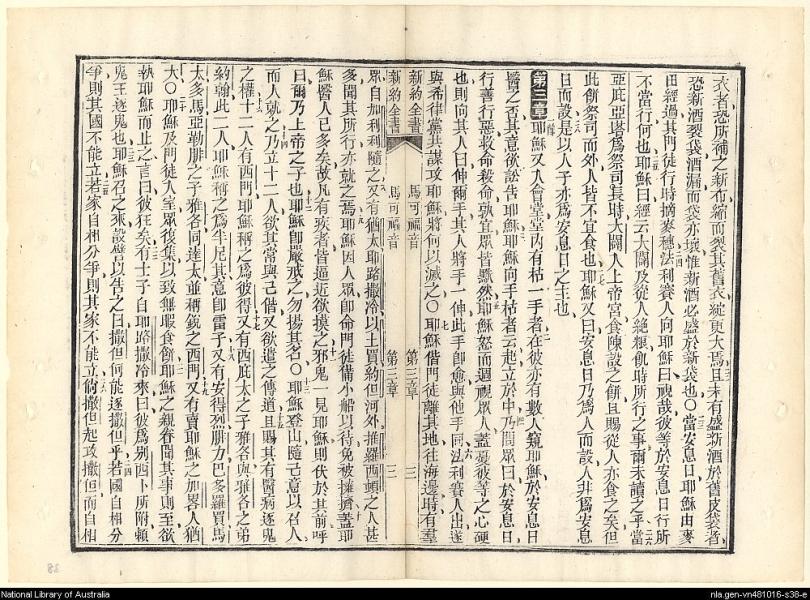 衣者恐所補之新布縮而裂其舊衣綻更大焉且未有盛新酒於舊皮袋者
恐新酒裂袋酒漏而袋亦壞惟新酒必盛於新袋也○當安息日耶穌由麥
田經過其門徒行時摘麥穗法利賽人向耶穌曰視哉彼等於安息日行所
不當行何也耶穌曰經云大闢及從人絕糧飢時所行之事爾未讀之乎當
亞庇亞塔爲祭司長時大闢入上帝宮食陳設之餅且賜從人亦食之矣但
此餅祭司而外人皆不宜食也耶穌又曰安息日乃爲人而設人非爲安息
日而設是以人子亦爲安息日之主也
第三章耶穌又入會堂堂內有枯一手者在彼亦有數人窺耶穌於安息日
醫之否其意欲訟告耶穌耶穌向手枯者云起立於中乃問眾曰於安息日
行善行惡救命殺命孰宜眾皆默然耶穌怒而週視眾人蓋憂彼等之心硬
也則向其人曰伸爾手其人將手一伸此手卽愈與他手同法利賽人出遂
與希律黨共謀攻耶穌將何以滅之○耶穌偕門徒離其地往海邊時有羣
新約全書 馬可福音 第三章 三
新約全書 馬可福音 第三章 三
眾自加利利隨之又有猶太耶路撒冷以土買約但河外推羅西頓之人甚
多聞其所行亦就之焉耶穌因人眾卽命門徒備小船以待免被擁擠蓋耶
穌醫人已多矣故凡有疾者皆逼近欲摸之邪鬼一見耶穌則伏於其前呼
曰爾乃上帝之子也耶穌卽嚴戒之勿揚其名○耶穌登山隨己意以召人
而人就之乃立十二人欲其常與己偕又欲遣之傳道且賜其有醫病逐鬼
之權十二人有西門耶穌稱之爲彼得又有西庇太之子雅各與雅各之弟
約翰此二人耶穌稱之爲半尼其意卽雷子又有安得烈腓力巴多羅買馬
太多馬亞勒腓之子雅各同達太並稱銳之西門又有賣耶穌之加畧人猶
大○耶穌及門徒入室眾復集以致無暇食餅耶穌之親眷聞其事則至欲
執耶穌而止之言曰彼狂矣有士子自耶路撒冷來曰彼爲別西卜所附賴
鬼王逐鬼也耶穌召之來設譬以告之曰撒但何能逐撒但乎若國自相分
爭則其國不能立若家自相分爭則其家不能立倘撒但起攻撒但而自相
38
National Library of Australia
nla.gen-vn481016-s38-e